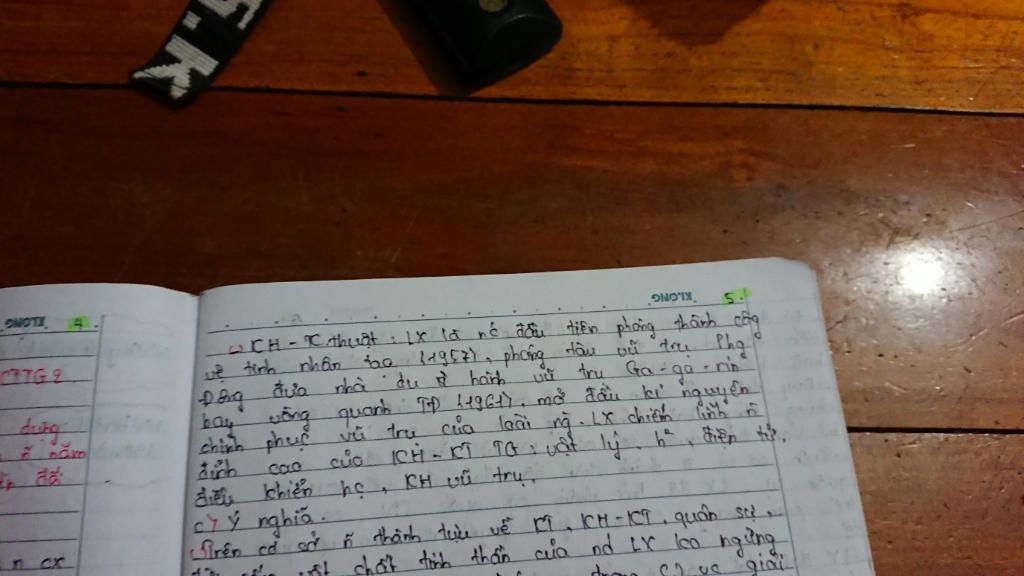 KLONG 4
CTTG2
dung
ñ năm
đối
n cx
KLONG 5
KH - K thuật: LX là nc đầu tiên phóng thành công
vệ tinh nhân tạo (1957), phóng tàu vũ trụ Phg
Đông đưa nhà du hành vũ trụ Ga-ga-rin
bay vòng quanh TĐ (1961), mở đầu kỉ nguyên
chinh phục vũ trụ của loài ng. LX chiếm lĩnh ñ
đỉnh cao của KH-KT TG: vật lý, h², điện tử,
điều khiển học, KH vũ trụ.
c) Ý nghĩa.
Trên cơ sở ñ thành tựu về KT, KH-KT, quân sự,
chất tinh thần của nd LX ko ngừng
giải